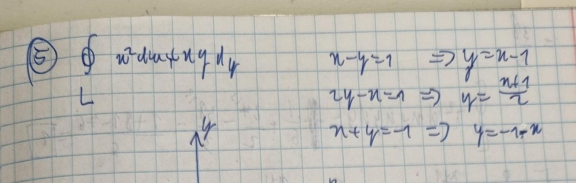 5 ∮ x²dx+xydy x-y=1 => y=x-1
L 2y-x=1 => y=\frac{x+1}{2}
x+y=-1 => y=-1-x
y